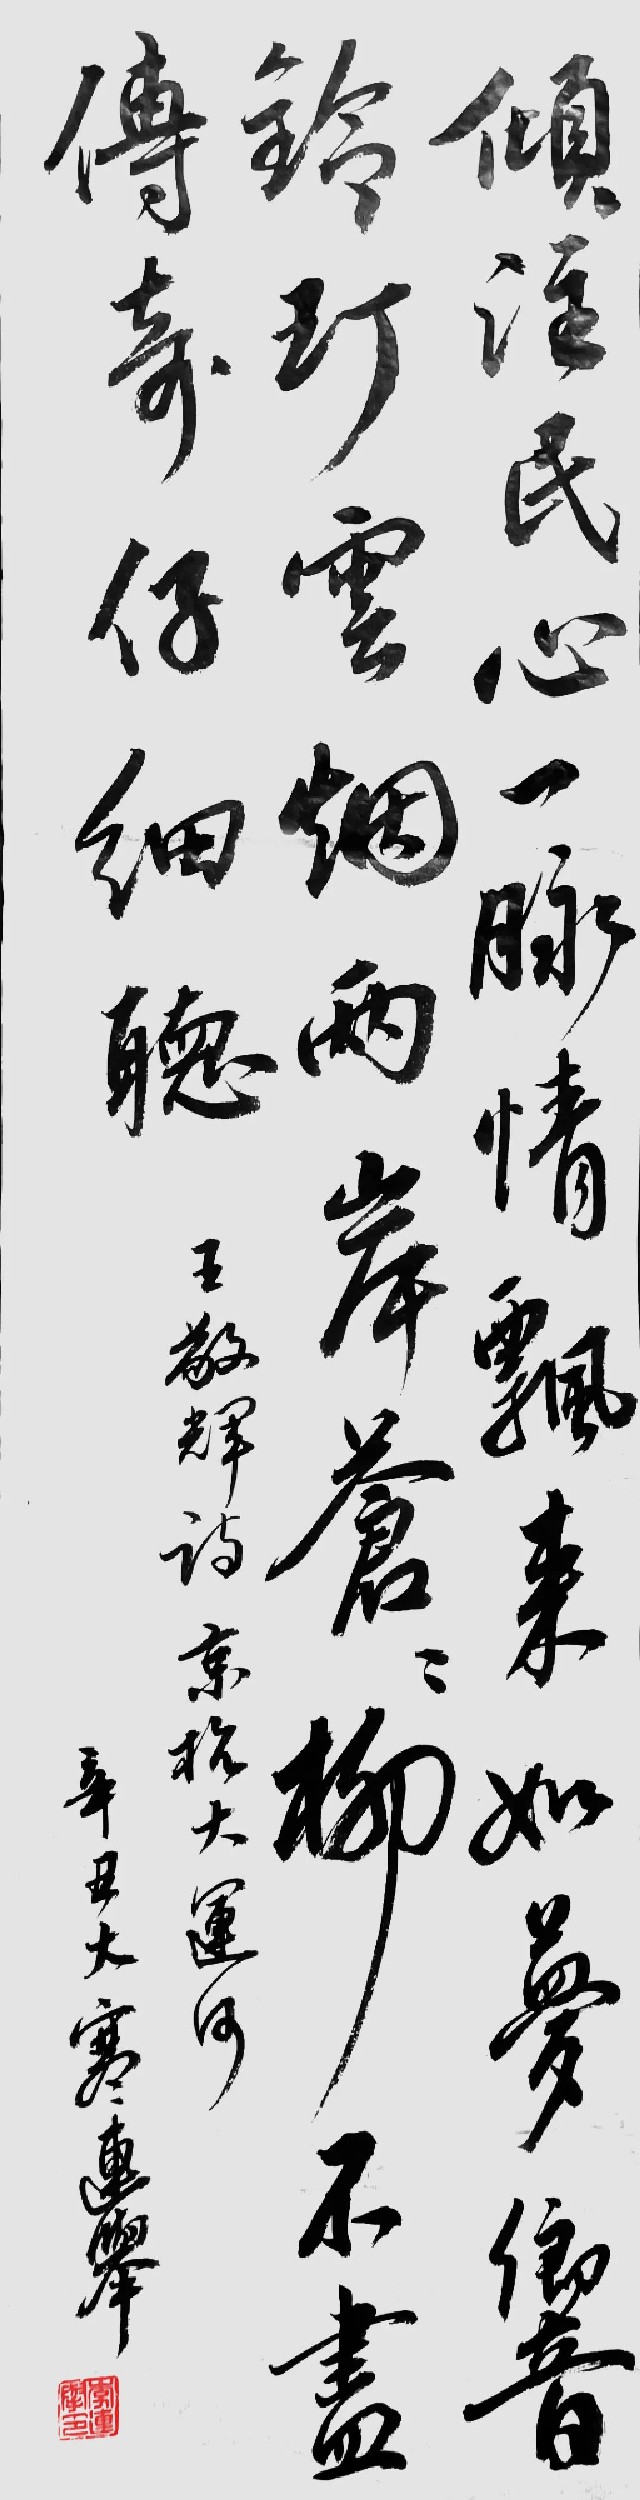 傾注民心一脉情飄来如夢響
鈴玎雲烟兩岸蒼〻柳不盡
傳奇仔細聽
王敬輝詩京杭大運河
辛丑大寒連舉